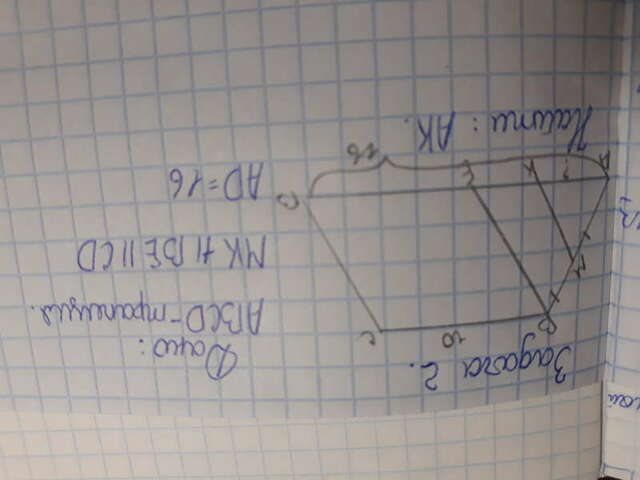 Задача 2.
Дано:
ABCD - трапеция.
MK || BE || CD
AD = 16
Найти: AK.
B 10 C
M
A ? K E D
16